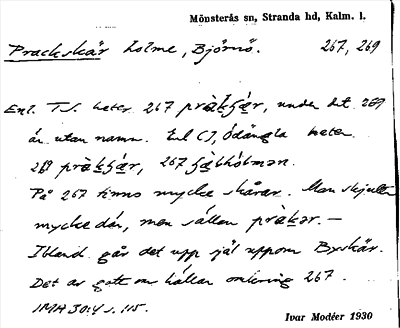 Mönsterås sn, Stranda hd, Kalm. l.
Prackskär holme, Björnö. 267, 269
Enl. T.S. heter 267 pràkʃǽr, under det 269
är utan namn. Enl CJ, Ödängla heter
269 pràkʃǽr, 267
På 267 finns mycke skårar. Man skjuter
mycke där, men sällan
Ibland går det upp själ uppom Byskär.
Det är gott om hållan omkring 267.
IMA 30:4 s. 115.
Ivar Modéer 1930